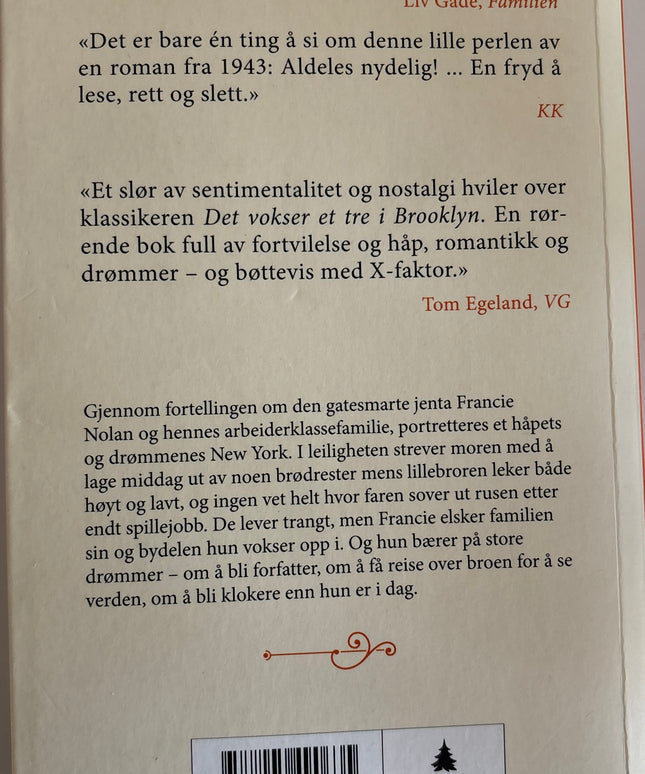 Liv Gade, Familien
«Det er bare én ting å si om denne lille perlen av
en roman fra 1943: Aldeles nydelig! ... En fryd å
lese, rett og slett.»
KK
«Et slør av sentimentalitet og nostalgi hviler over
klassikeren Det vokser et tre i Brooklyn. En rør-
ende bok full av fortvilelse og håp, romantikk og
drømmer – og bøttevis med X-faktor.»
Tom Egeland, VG
Gjennom fortellingen om den gatesmarte jenta Francie
Nolan og hennes arbeiderklassefamilie, portretteres et håpets
og drømmenes New York. I leiligheten strever moren med å
lage middag ut av noen brødrester mens lillebroren leker både
høyt og lavt, og ingen vet helt hvor faren sover ut rusen etter
endt spillejobb. De lever trangt, men Francie elsker familien
sin og bydelen hun vokser opp i. Og hun bærer på store
drømmer – om å bli forfatter, om å få reise over broen for å se
verden, om å bli klokere enn hun er i dag.